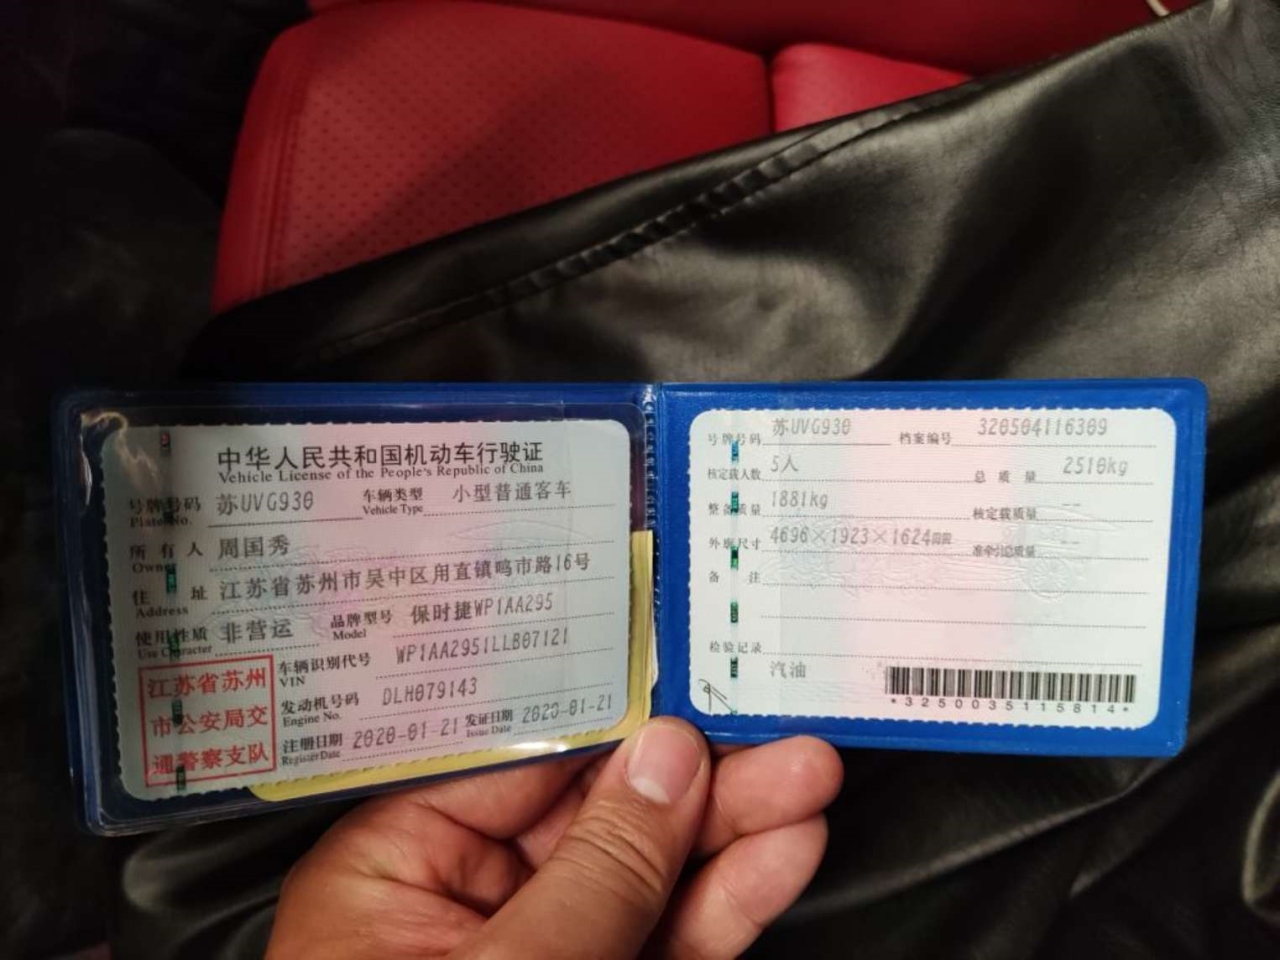 中华人民共和国机动车行驶证
Vehicle License of the People's Republic of China
号牌号码 苏UVG930 车辆类型 小型普通客车
Plate No. Vehicle Type
所有人 周国秀
Owner
住址 江苏省苏州市吴中区甪直镇鸣市路16号
Address
使用性质 非营运 品牌型号 保时捷WP1AA295
Use Character Model
江苏省苏州
市公安局交
通警察支队
车辆识别代号 WP1AA2951LLB07121
VIN
发动机号码 DLH079143
Engine No.
注册日期 2020-01-21 发证日期 2020-01-21
Register Date Issue Date
号牌号码 苏UVG930 档案编号 320504116309
核定载人数 5人 总质量 2510kg
整备质量 1881kg 核定载质量 --
外廓尺寸 4696×1923×1624mm 准牵引总质量 --
备注
检验记录
汽油
*3250035115814*